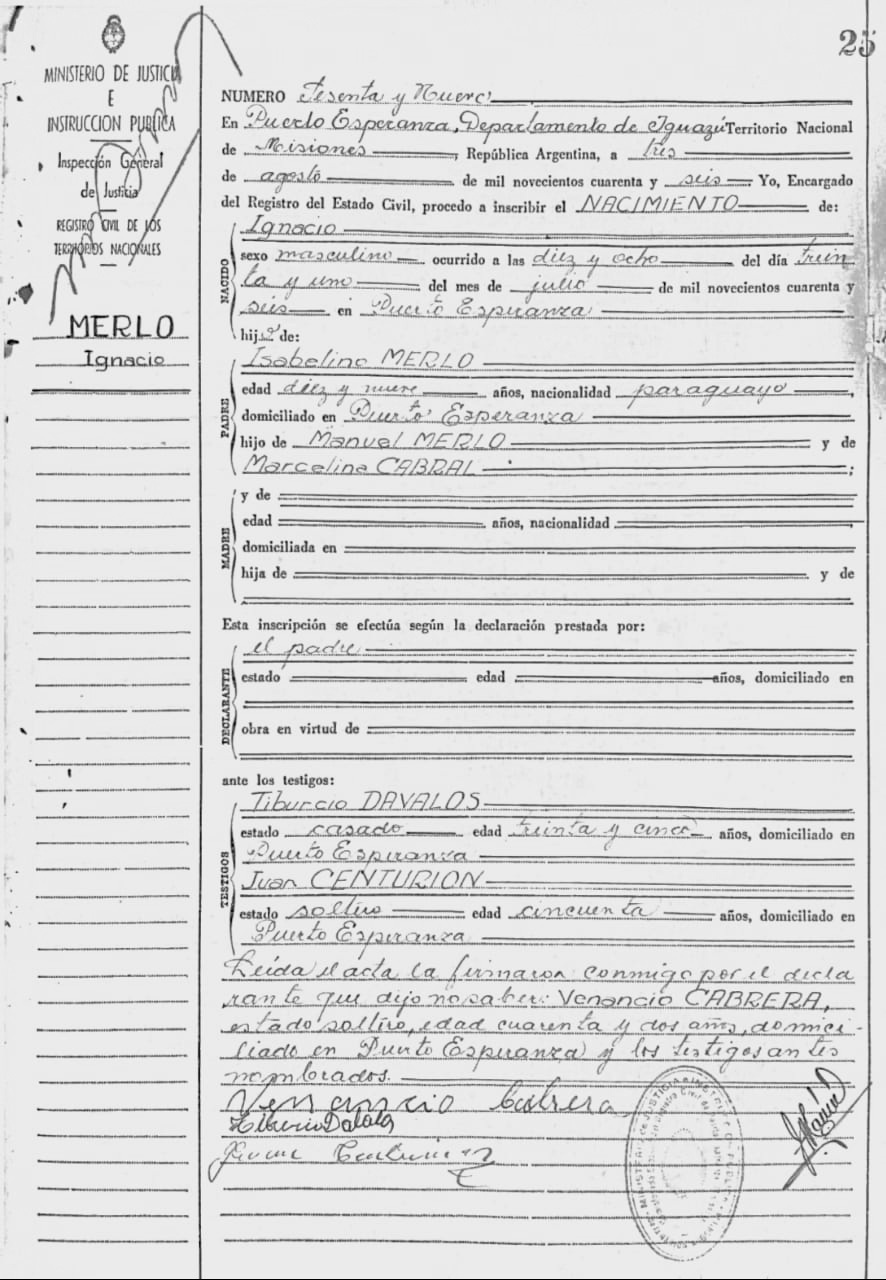 25
MINISTERIO DE JUSTICIA
E
INSTRUCCION PUBLICA
Inspección General
de Justicia
REGISTRO CIVIL DE LOS
TERRITORIOS NACIONALES
MERLO
Ignacio
NUMERO Sesenta y Nueve
En Puerto Esperanza, Departamento de Iguazú Territorio Nacional
de Misiones, República Argentina, a tres
de agosto de mil novecientos cuarenta y seis Yo, Encargado
del Registro del Estado Civil, procedo a inscribir el NACIMIENTO de:
NACIDO
Ignacio
sexo masculino ocurrido a las diez y ocho del día trein
ta y uno del mes de julio de mil novecientos cuarenta y
seis en Puerto Esperanza
hijo de:
PADRE
Isabelino MERLO
edad diez y nueve años, nacionalidad paraguayo,
domiciliado en Puerto Esperanza
hijo de Manuel MERLO y de
Marcelina CABRAL;
MADRE
y de
edad años, nacionalidad
domiciliada en
hija de y de
Esta inscripción se efectúa según la declaración prestada por:
DECLARANTE
el padre
estado edad años, domiciliado en
obra en virtud de
ante los testigos:
TESTIGOS
Tiburcio DAVALOS
estado casado edad treinta y cinco años, domiciliado en
Puerto Esperanza
Juan CENTURION
estado soltero edad cincuenta años, domiciliado en
Puerto Esperanza
Leída el acta la firmaron conmigo por el decla
rante que dijo no saber: Venancio CABRERA,
estado soltero, edad cuarenta y dos años, domici-
liado en Puerto Esperanza y los testigos antes
nombrados.
Venancio Cabrera